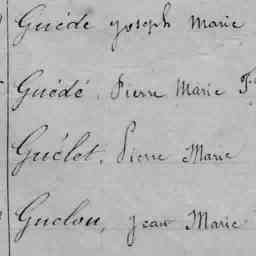 Guédé Joseph Marie
Guédé, Pierre Marie F
Guélet, Pierre Marie
Guelou, Jean Marie